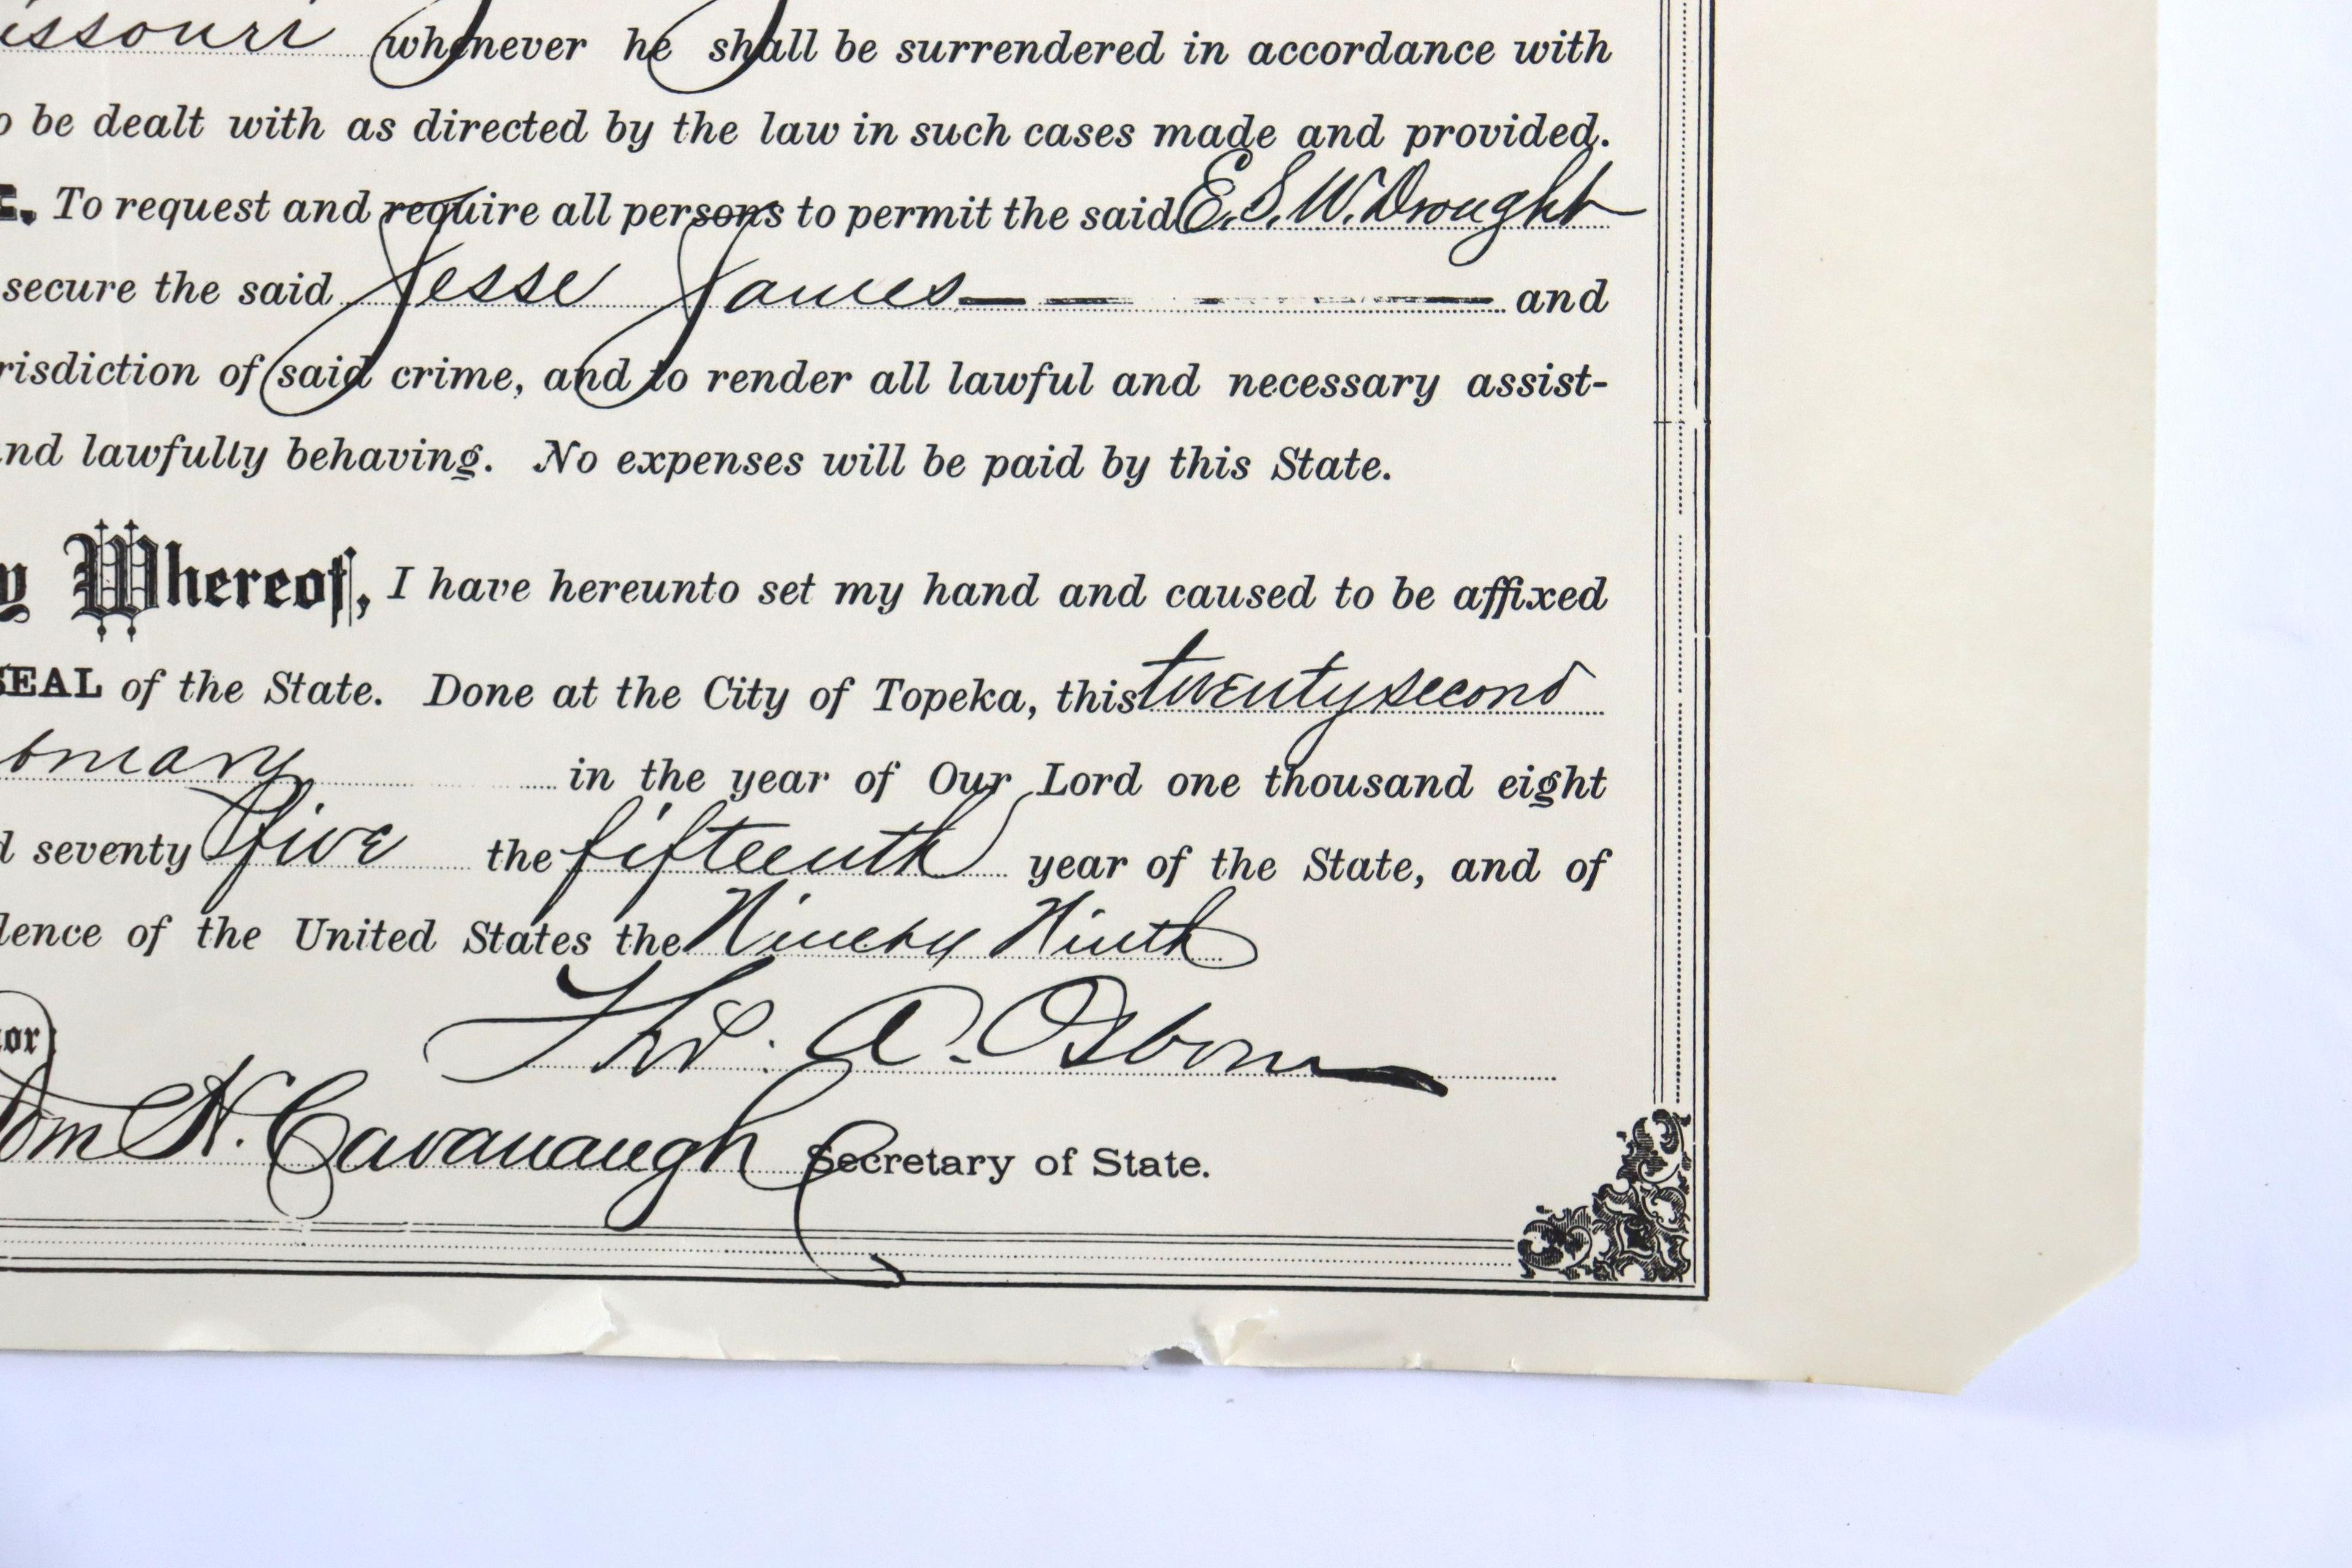 issouri whenever he shall be surrendered in accordance with
o be dealt with as directed by the law in such cases made and provided.
To request and require all persons to permit the said E. S. W. Drought
secure the said Jesse James and
risdiction of said crime, and to render all lawful and necessary assist-
nd lawfully behaving. No expenses will be paid by this State.
y Whereof, I have hereunto set my hand and caused to be affixed
SEAL of the State. Done at the City of Topeka, this twenty second
bruary in the year of Our Lord one thousand eight
d seventy five the fifteenth year of the State, and of
dence of the United States the Ninety Ninth
Tho. A. Osborn
or:
om H. Cavanaugh Secretary of State.